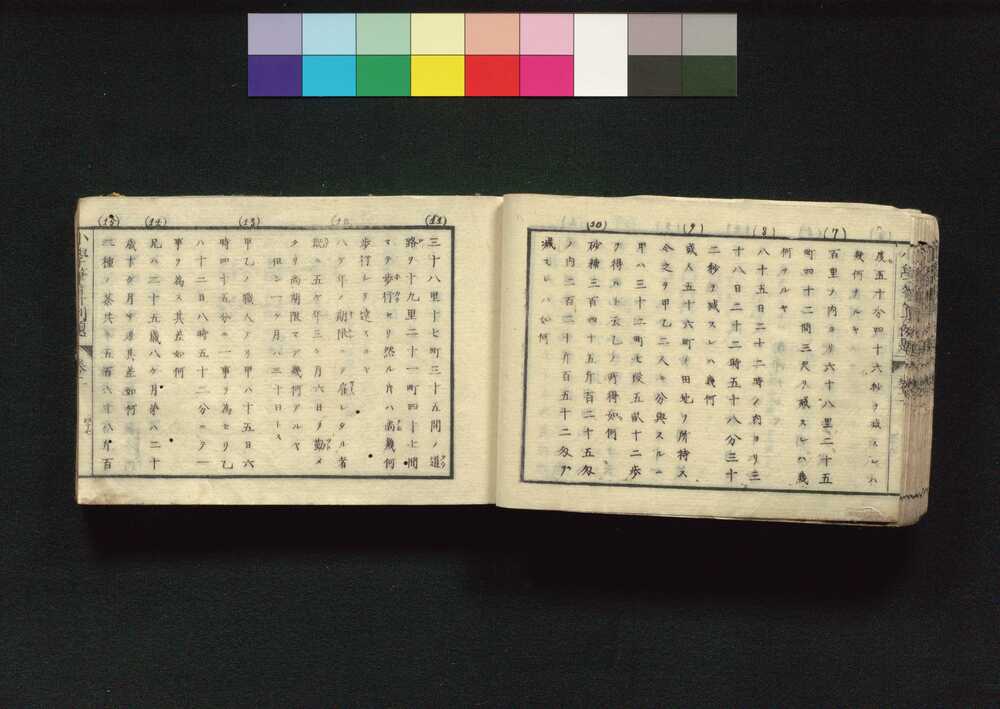 度五十分四十六秒ヲ減スレハ
幾何ヲルヤ
(7)
百里ノ内ヨリ六十八里二十五
町四十二間三尺ヲ減スレハ幾
何ヲルヤ
(8)
八十五日二十二時ノ内ヨリ三
十八日二十二時五十八分三十
二秒ヲ減スレハ幾何
(9)
或人五十六町ノ田地ヲ所持ス
今之ヲ甲乙二人ヘ分與スルニ
甲ハ三十二町七段五畝十二歩
ヲ得ルト云乙ノ所得如何
(10)
砂糖三百四十五斤百二十五匁
ノ内二百二十斤百五十二匁ヲ
減スレハ如何
(11)
三十八里十七町三十五間ノ道
路ヲ十九里二十一町四十七間
マテ歩行セリ然ル片ハ尚幾何
歩行シテ達スルヤ
(12)
八ケ年ノ期限ニテ雇レタル者
既ニ五ケ年三ケ月六日ヲ勤メ
タリ尚期限マテ幾何アルヤ
但シ一ケ月ハ三十日トス
(13)
甲乙ノ職人アリ甲ハ十五日六
時四十五分ニ一事ヲ為セリ乙
ハ十二日八時五十二分ニテ一
事ヲ為ス其差如何
(14)
兄ハ二十五歳八ケ月弟ハ二十
歳十ケ月ナリ其差如何
(15)
二種ノ茶共ニ五百六十八斤百